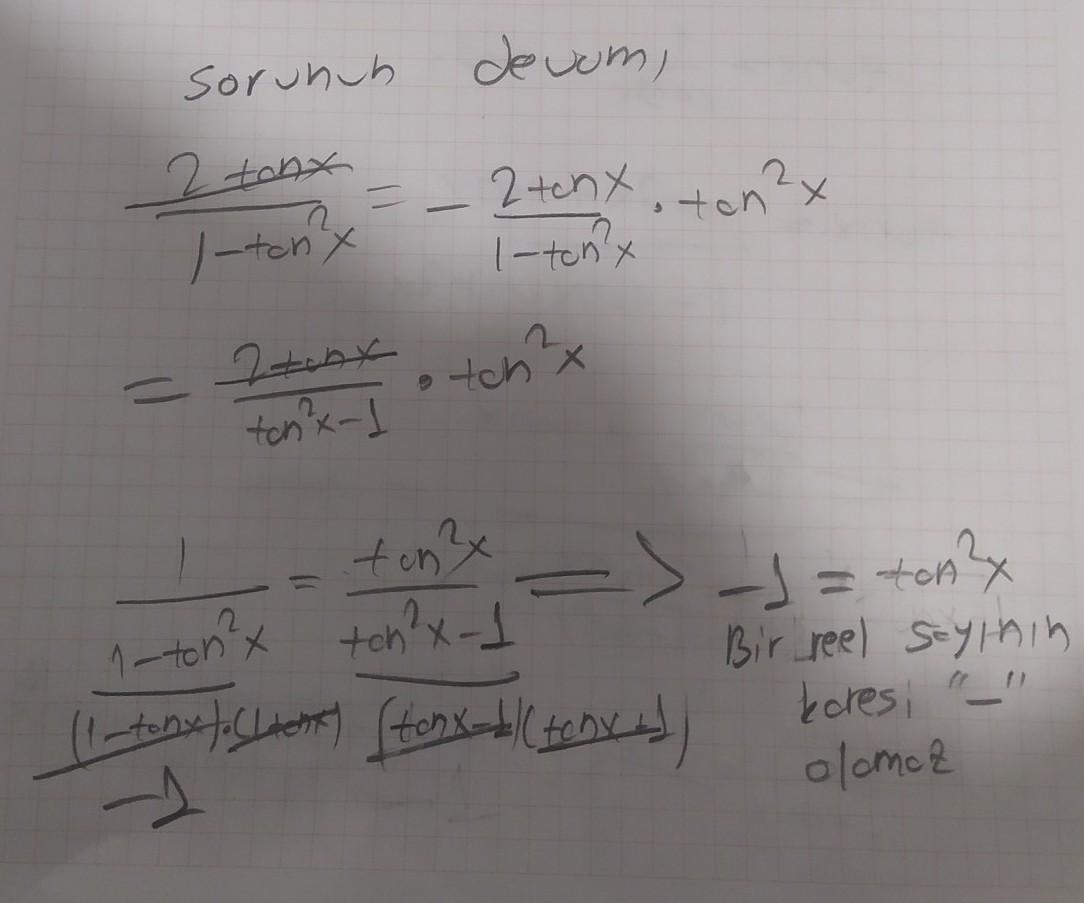 sorunun devamı
2tanx / 1-tan²x = - 2tanx / 1-tan²x . tan²x
= 2tanx / tan²x-1 . tan²x
1 / 1-tan²x = tan²x / tan²x-1 => -1 = tan²x
(1-tanx).(1+tanx) (tanx-1)(tanx+1)
-1
Bir reel sayının
karesi "-"
olamaz